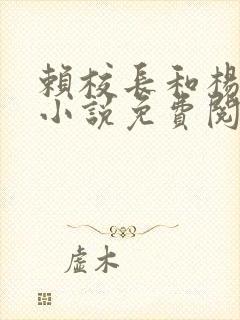 賴校長和楊
小說免費閱
虛木